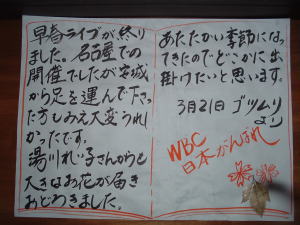 早春ライブが終り
ました。名古屋での
開催でしたが宮城
から足を運んで下さっ
た方もみえ大変うれし
かったです。
湯川れい子さんからも
大きなお花が届き
おどろきました。
あたたかい季節になっ
てきたのでどこかに出
掛けたいと思います。
3月21日 ゴツムリ
より
WBC
日本がんばれ